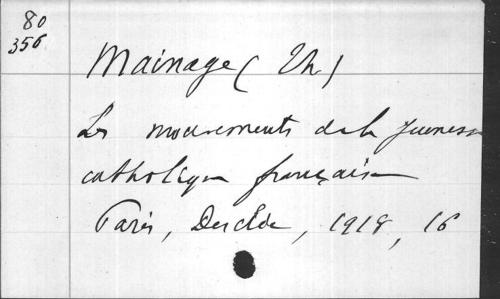 80
356
Mainage (Th)
Les mouvements de la jeunesse
catholique française
Paris, Desclée, 1918, 16